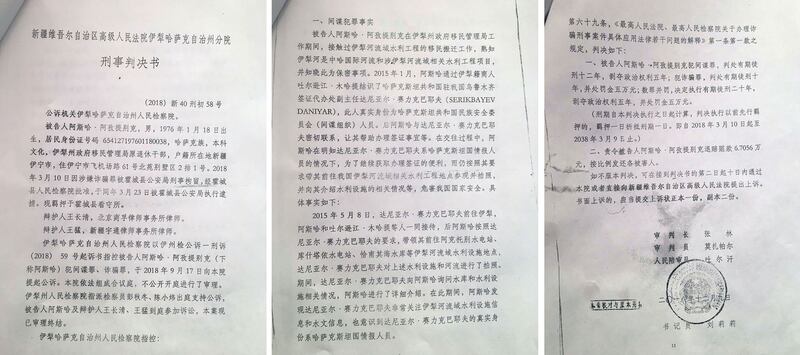 新疆维吾尔自治区高级人民法院伊犁哈萨克自治州分院
刑事判决书
（2018）新 40 刑初 58 号
公诉机关伊犁哈萨克自治州人民检察院。
被告人阿斯哈·阿孜提别克，男，1976 年 1 月 18 日出
生，居民身份证号码 654127197601180038，哈萨克族，本科
文化，伊犁州政府移民管理局原退休干部，户籍所在地新疆
伊宁市，住伊宁市飞机场路 61 号北苑别墅区 2 排 1 号。2018
年 3 月 10 日因涉嫌诈骗罪被霍城县公安局刑事拘留，经霍城
县人民检察院批准，于同年 3 月 23 日被霍城县公安局执行逮
捕。现羁押于霍城县看守所。
辩护人王长清，北京离寻律师事务所律师。
辩护人王猛，新疆宇通律师事务所律师。
伊犁哈萨克自治州人民检察院以伊州检公诉一刑诉
（2018） 59 号起诉书指控被告人阿斯哈·阿孜提别克（下
称阿斯哈）犯间谍罪、诈骗罪，于 2018 年 9 月 17 日向本院
提起公诉。本院依法组成合议庭，不公开开庭进行了审理。
伊犁州人民检察院指派检察员郭秋冬、陈小炜出庭支持公诉，
被告人阿斯哈及辩护人王长清、王猛到庭参加诉讼。本案现
已审理终结。
伊犁哈萨克自治州人民检察院指控：
一、间谍犯罪事实
被告人阿斯哈·阿孜提别克在伊犁州政府移民管理局工
作期间，接触过伊犁河流域水利工程的移民搬迁工作，熟知
伊犁河是中哈国际河流和涉伊犁河流域相关水利工程项目，
并知晓此为保密事项。2015 年 1 月，阿斯哈通过伊犁籍商人
吐尔逊江·木哈提结识了哈萨克斯坦共和国驻我国乌鲁木齐
签证代办处副主任达尼亚尔·赛力克巴耶夫（SERIKBAYEV
DANIYAR），此人真实身份为哈萨克斯坦共和国民族安全委
员会（间谍组织）人员。后阿斯哈与达尼亚尔·赛力克巴耶
夫密切联系，让其帮助办理签证事宜等。在交往过程中，阿
斯哈在明知达尼亚尔·赛力克巴耶夫系哈萨克斯坦国情报人
员的情况下，为了继续获取办理签证的便利，而仍按照其要
求带其前往我国伊犁河流域相关水利工程地点参观并拍照，
并向其介绍水利设施的相关情况等，危害我国国家安全。具
体事实如下：
2015 年 5 月 8 日，达尼亚尔·赛力克巴耶夫前往伊犁，
阿斯哈和吐尔逊江·木哈提等人一同接待，后阿斯哈按照达
尼亚尔·赛力克巴耶夫的要求，带领其前往阿克托别水电站、
库什塔依水电站、恰甫其海水库等伊犁河流域水利设施地点，
达尼亚尔·赛力克巴耶夫对上述水利设施和河流进行了拍照。
期间，达尼亚尔·赛力克巴耶夫向阿斯哈询问水库和水利设
施相关情况，阿斯哈进行了详细介绍。在此期间，阿斯哈发
现达尼亚尔·赛力克巴耶夫非常关注伊犁河流域水利设施信
息和水文信息，也意识到达尼亚尔·赛力克巴耶夫的真实身
份系哈萨克斯坦国情报人员。
第六十九条，《最高人民法院、最高人民检察院关于办理诈
骗刑事案件具体应用法律若干问题的解释》第一条第一款之
规定，判决如下：
一、被告人阿斯哈·阿孜提别克犯间谍罪，判处有期徒
刑十二年，剥夺政治权利五年；犯诈骗罪，判处有期徒刑十
年，并处罚金五万元；数罪并罚，决定执行有期徒刑二十年，
剥夺政治权利五年，并处罚金五万元。
（刑期自本判决执行之日起计算，判决执行以前先行羁
押的，羁押一日折抵刑期一日。即自 2018 年 3 月 10 日起至
2038 年 3 月 9 日止。）
二、责令被告人阿斯哈·阿孜提别克退赔赃款 6.7056 万
元，按比例发还各被害人。
如不服本判决，可在接到判决书的第二日起十日内通过
本院或者直接向新疆维吾尔自治区高级人民法院提出上诉。
书面上诉的，应当提交上诉状正本一份，副本二份。
审 判 长 张 林
审 判 员 莫扎帕尔
人民陪审员 吐 尔 汗
本件核对与原本无异
书 记 员 刘 莉 莉
11